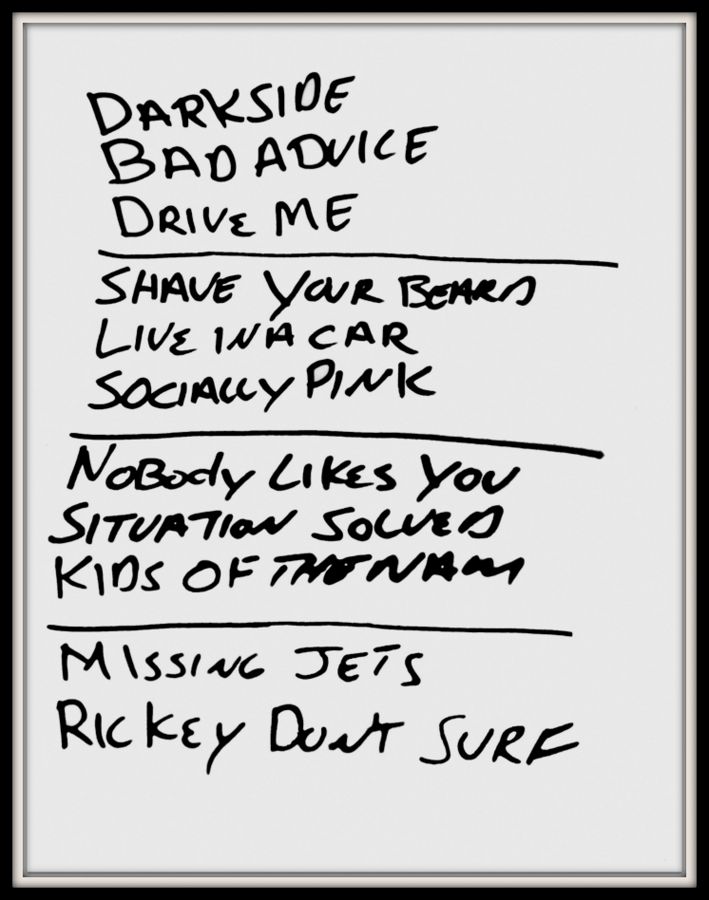 DARKSIDE
BAD ADVICE
DRIVE ME
SHAVE YOUR BEARD
LIVE IN A CAR
SOCIALLY PINK
NOBODY LIKES YOU
SITUATION SOLVED
KIDS OF THE NAM
MISSING JETS
RICKEY DONT SURF